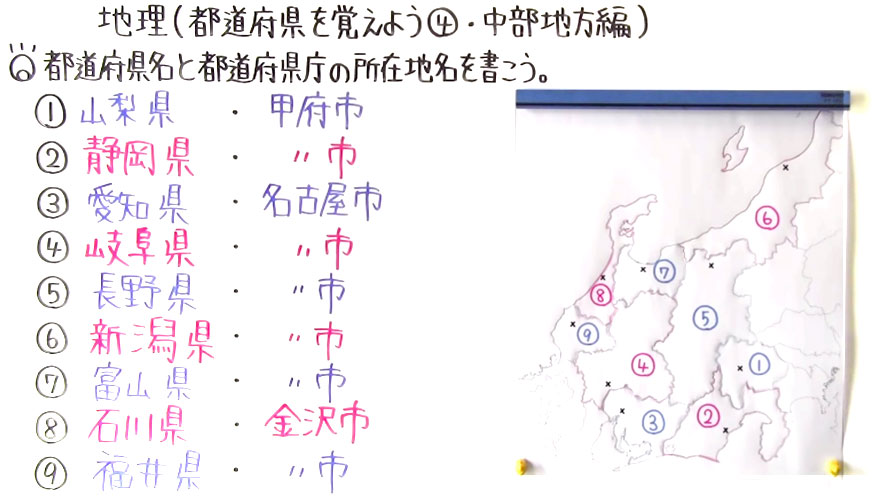 地理(都道府県を覚えよう④・中部地方編)
都道府県名と都道府県庁の所在地名を書こう。
① 山梨県 ・ 甲府市
② 静岡県 ・ 〃市
③ 愛知県 ・ 名古屋市
④ 岐阜県 ・ 〃市
⑤ 長野県 ・ 〃市
⑥ 新潟県 ・ 〃市
⑦ 富山県 ・ 〃市
⑧ 石川県 ・ 金沢市
⑨ 福井県 ・ 〃市
⑥
⑦
⑧
⑤
⑨
④
①
③
②